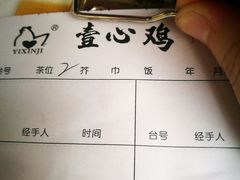 壹心鸡
YIXINJI ®
台号 茶位 2 芥 巾 饭 年 月
经手人 时间 台号 经手人